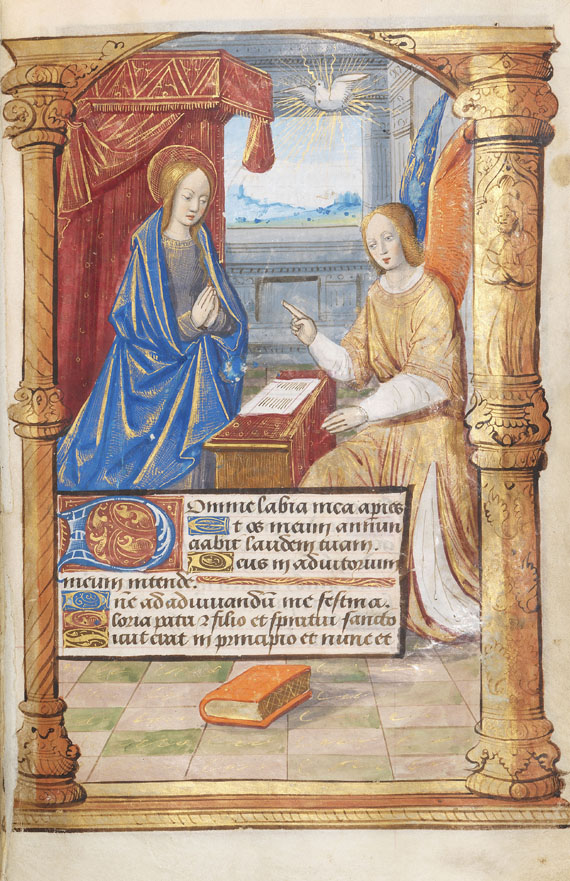 Domine labia mea aperies
Et os meum annun
ciabit laudem tuam.
Deus in adiutorium
meum intende.
Dñe ad adiuvandũ me festina.
Gloria patri ⁊ filio et spiritui sancto
Sicut erat in principio et nunc et